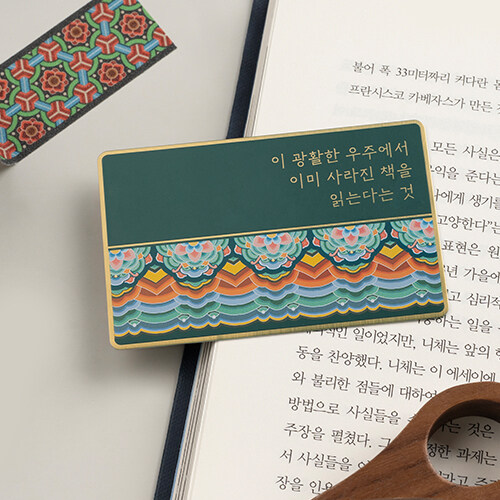 이 광활한 우주에서
이미 사라진 책을
읽는다는 것
불어 폭 33미터짜리 커다란
프란시스코 카베자스가 만든
모든 사실은
익을 준다는
나에게 생기를
고양한다"는
표현은 원
년 가을에
고 심리적
하는 일을
인 일이었지만, 니체는 앞의
동을 찬양했다. 니체는 이 에세이에
와 불리한 점들에 대하여
방법으로 사실들을 는 것은
주장을 펼쳤다. 그 정한 과제는
서 사실들을
장을 인용